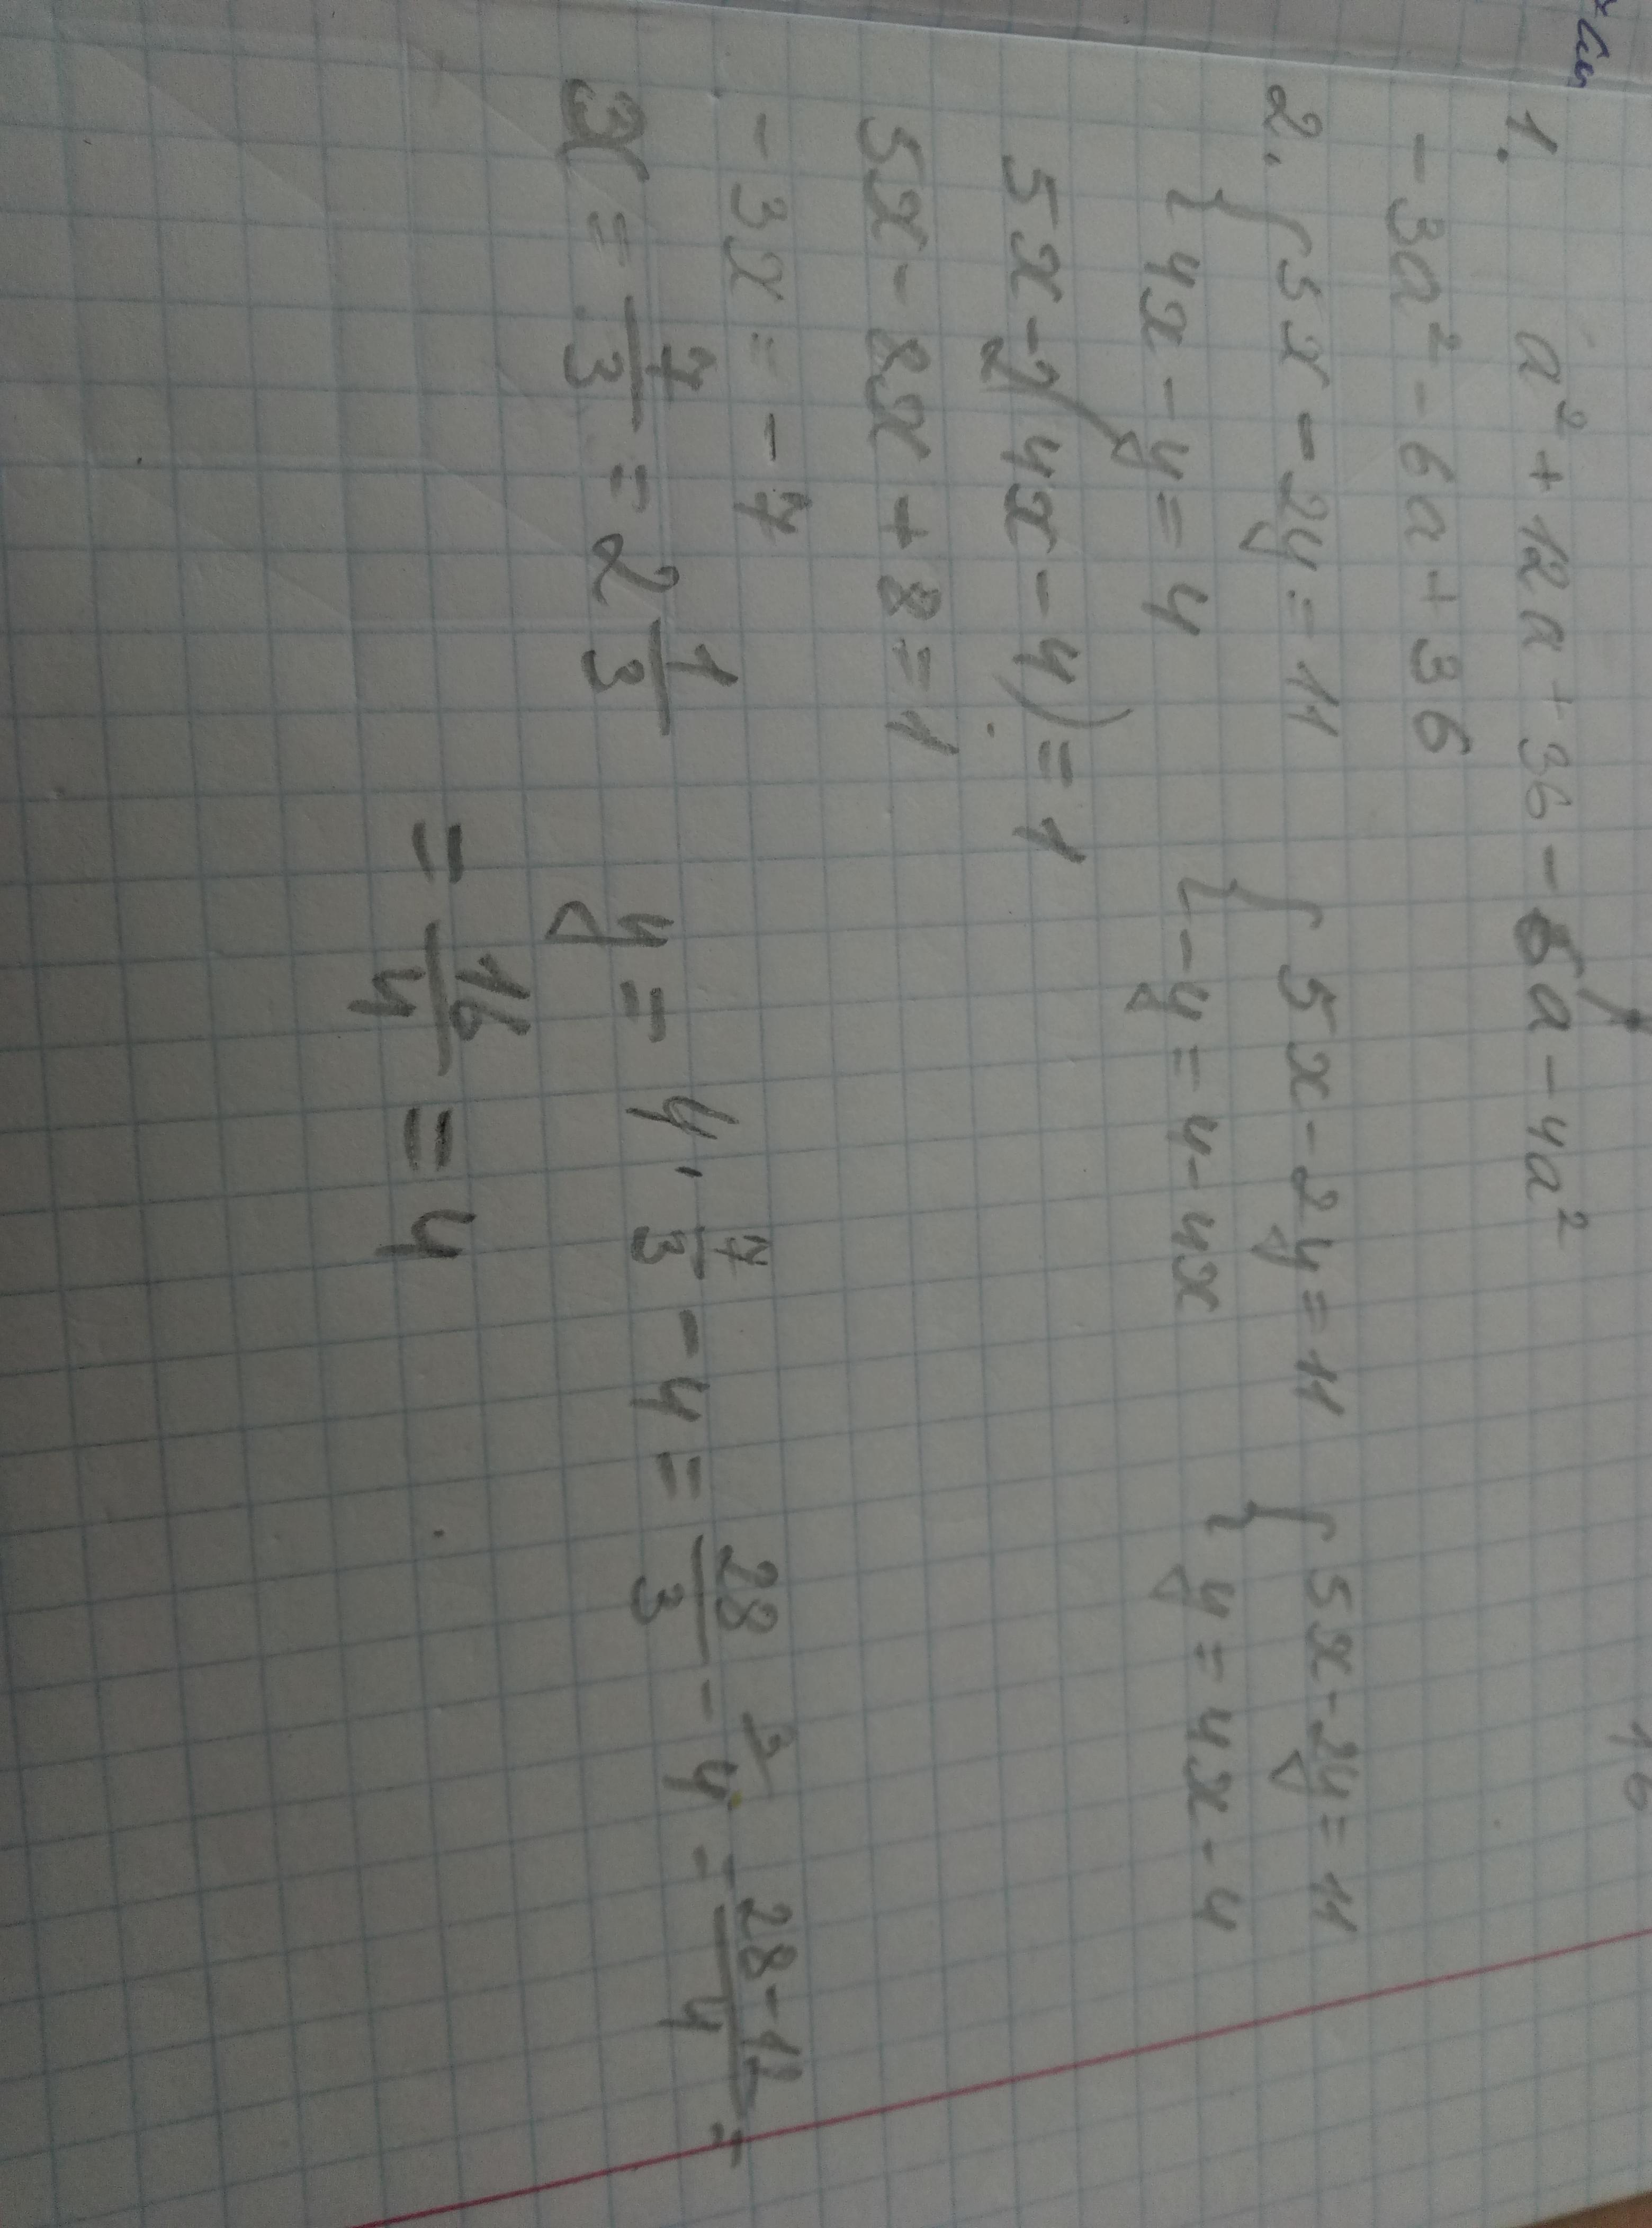 1. a² + 12a + 36 - 6a - 4a²
- 3a² - 6a + 36
2. { 5x - 2y = 11 { 5x - 2y = 11 { 5x - 2y = 11
4x - y = 4 - y = 4 - 4x y = 4x - 4
5x - 2(4x - 4) = 1
5x - 8x + 8 = 1
- 3x = - 7
x = 7/3 = 2 1/3 y = 4 · 7/3 - 4 = 28/3 - 4 3/ = 28 - 12/4 =
= 16/4 = 4